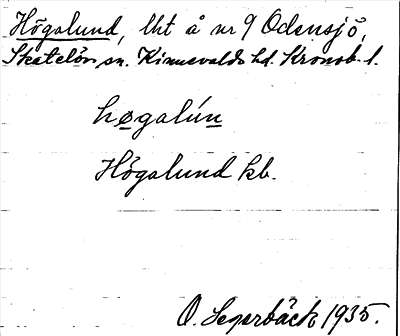 Högalund, lht å nr 9 Odensjö,
Skatelövs sn. Kinnevalds hd. Kronob. l.
høgalún
Högalund kb.
O. Segerbäck 1935.